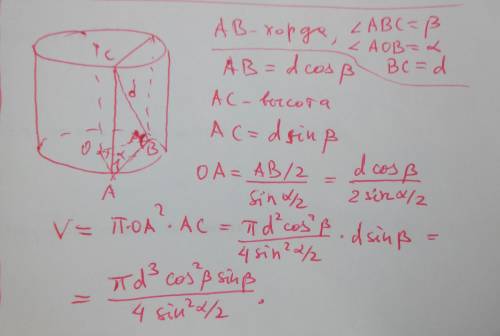 AB-хорда, ∠ABC=β
∠AOB=α
AB=dcosβ BC=d
AC-высота
AC=dsinβ
OA = (AB/2)/(sinα/2) = (dcosβ)/(2sinα/2)
V = π·OA²·AC = (πd²cos²β)/(4sin²α/2)·dsinβ =
= (πd³cos²βsinβ)/(4sin²α/2).
C
d
O
α
B
A